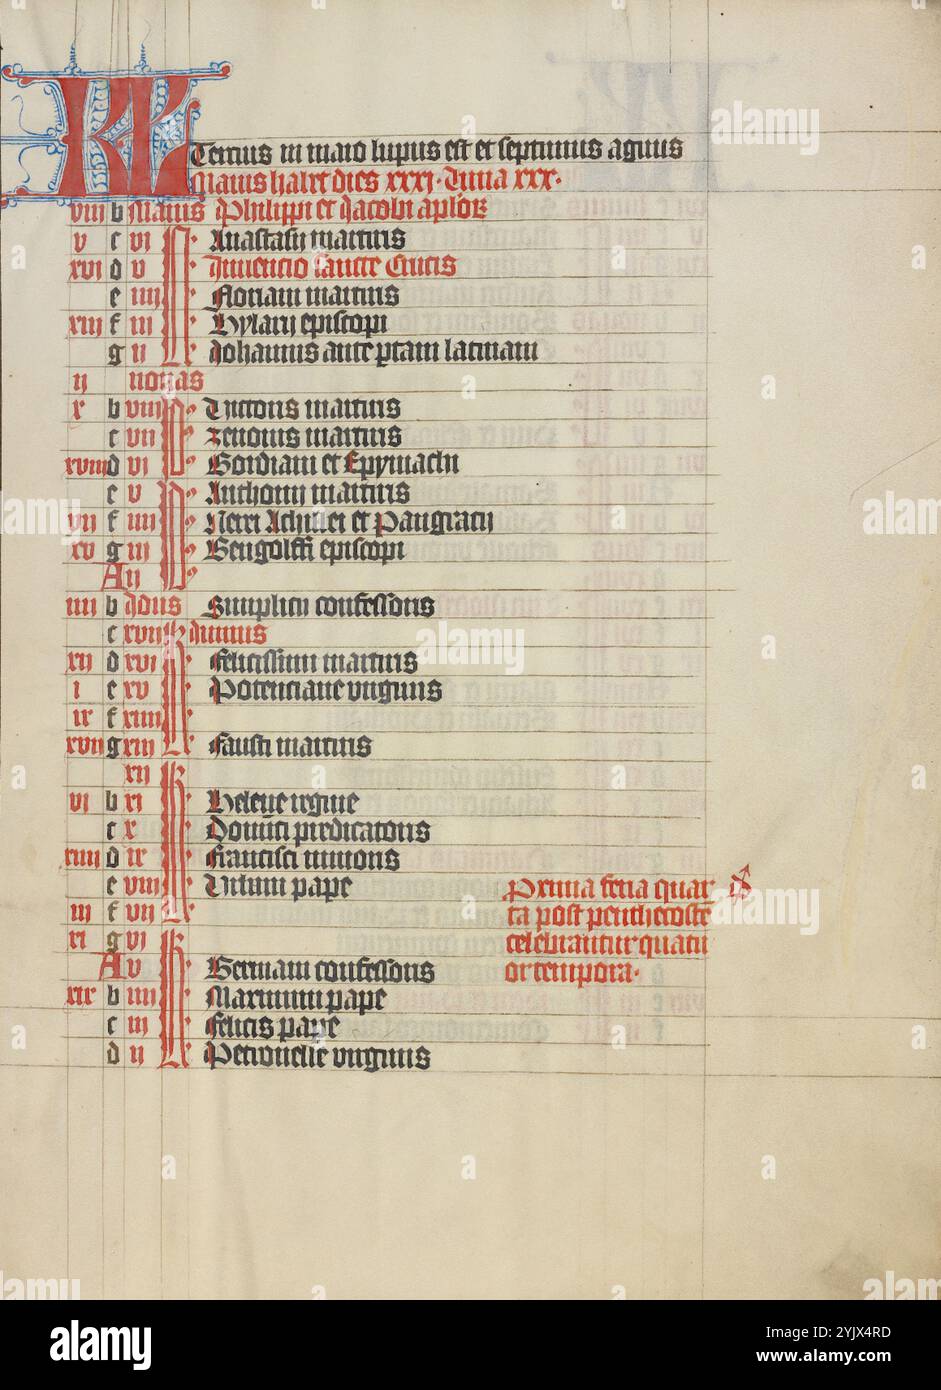 KL Tercius in maio lupus est et septimus aguis
Maius habet dies xxxi. Luna xxx.
viii b Maius Philippi et Jacobi aplor
v c vi N Anastasii martiris
xvi d v Inuencio sancte Crucis
e iiii Floriani martiris
xiii f iii Hylarii episcopi
g ii Johannis ante ptam latinam
ii nonas
x b viii Victoris martiris
c vii Zenonis martiris
xviii d vi Gordiani et Epymachi
e v Anthonii martiris
vii f iiii Nerei Achillei et Pangracii
xv g iii Gengolffi episcopi
A ii
iiii b Idus Simplicii confessoris
c xvii kl Iunius
xii d xvi Felicissimi martiris
i e xv Potenciane virginis
ix f xiiii
xvii g xiii Fausti martiris
xii
vi b xi Helene regine
c x Dominici predicatoris
xiiii d ix Francisci minoris
e viii Urbani pape
Proxima feria quar
iii f vii
ta post penthecoste
xi g vi
celebrantur quatu
A v Germani confessoris
or tempora.
xix b iiii Maximini pape
c iii Felicis pape
d ii Petronelle virginis
alamy
a
Image ID: 2YJX4RD
www.alamy.com